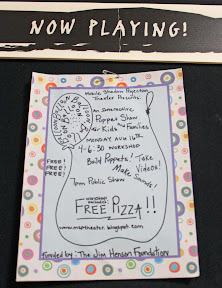 NOW PLAYING!
Mobile Shadow Projection
Theater Presents:
An Interactive
Puppet Show
for Kids and Families
MONDAY AUG 16TH
4-6:30 WORKSHOP
Build Puppets! Take
Videos!
Make Sounds!
7pm Public Show
FREE!
FREE!
FREE!
FREE PIZZA!!
www.msptheater.blogspot.com
Funded by: The Jim Henson Foundation